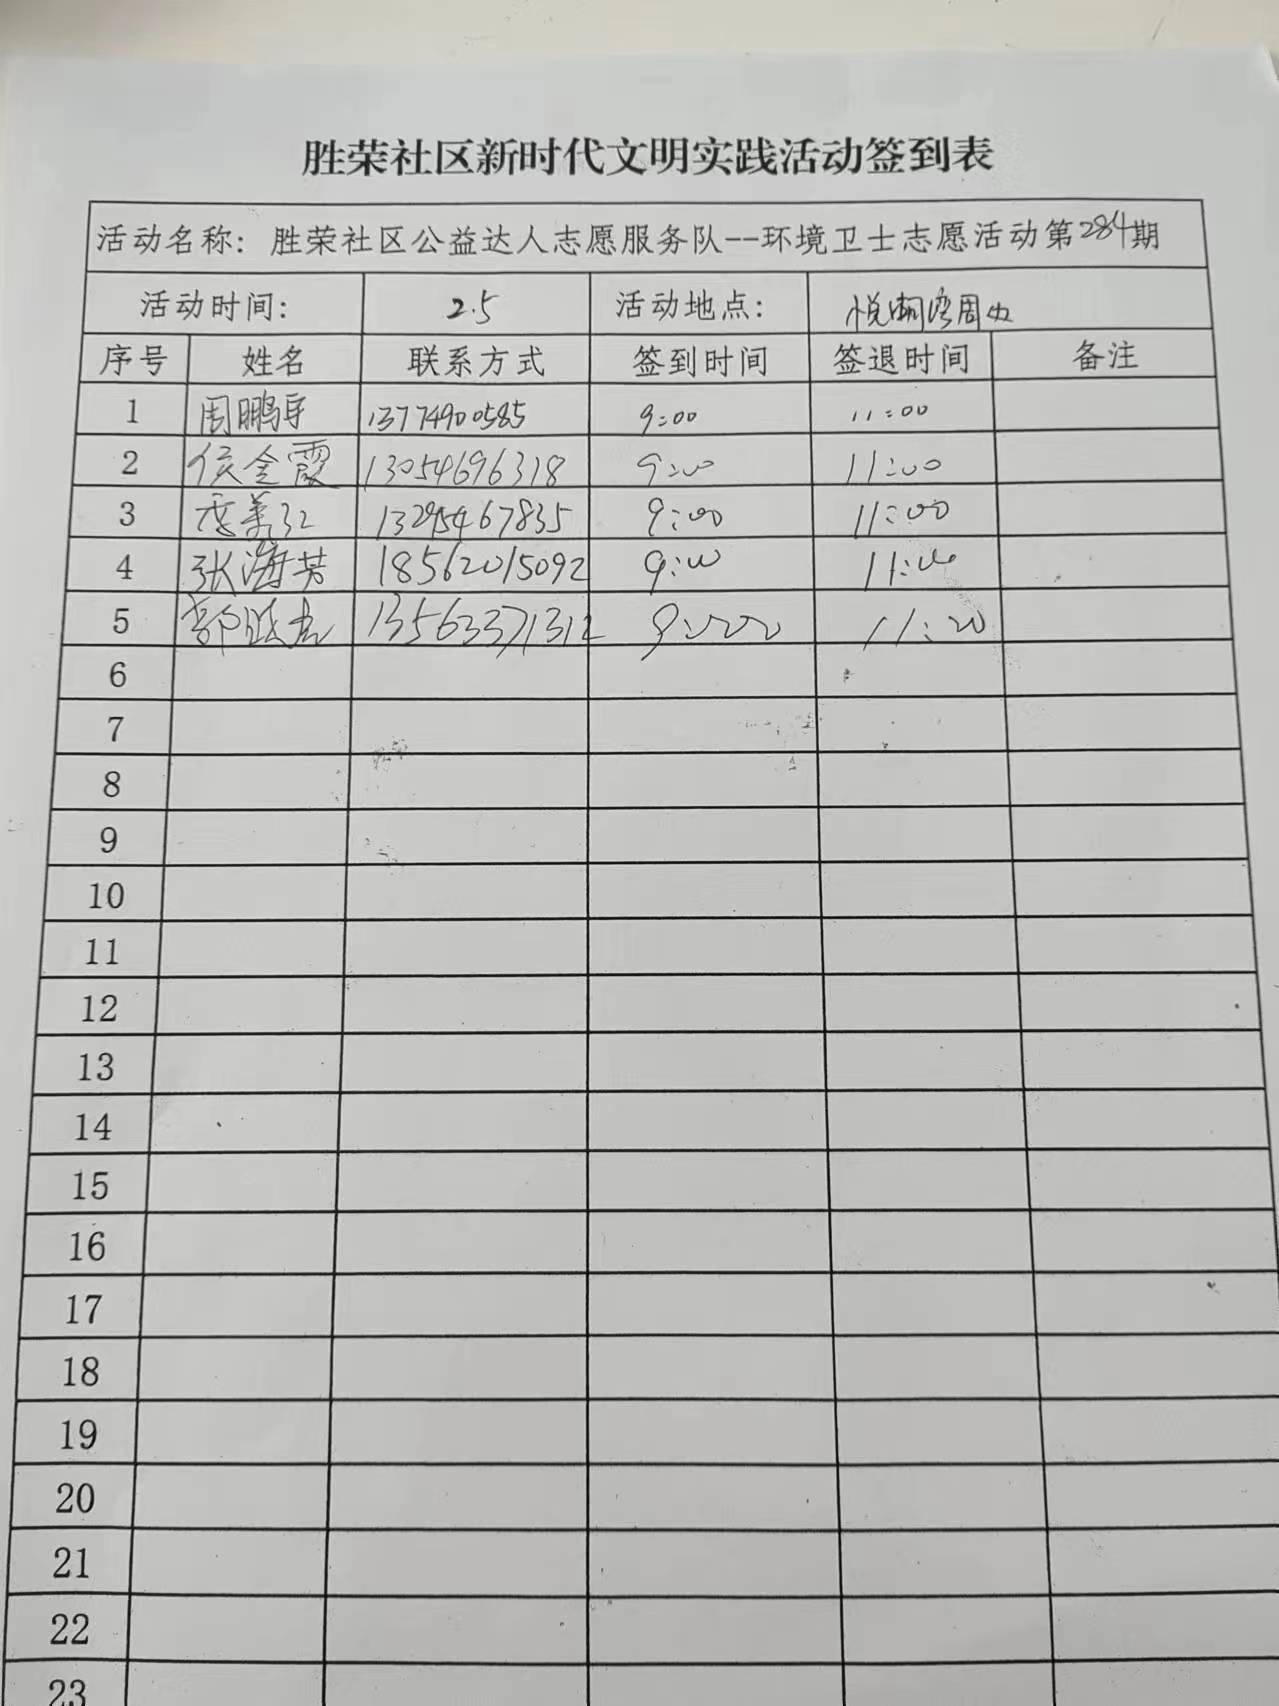 胜荣社区新时代文明实践活动签到表
活动名称: 胜荣社区公益达人志愿服务队--环境卫士志愿活动第284期
活动时间: 2.5 活动地点: 悦湖湾周边
序号 姓名 联系方式 签到时间 签退时间 备注
1 周鹏宇 13774900585 9:00 11:00
2 侯金霞 13054696318 9:00 11:00
3 13295467835 9:00 11:00
4 张海芳 18562015092 9:00 11:00
5 13563371312 11:00
6
7
8
9
10
11
12
13
14
15
16
17
18
19
20
21
22
23